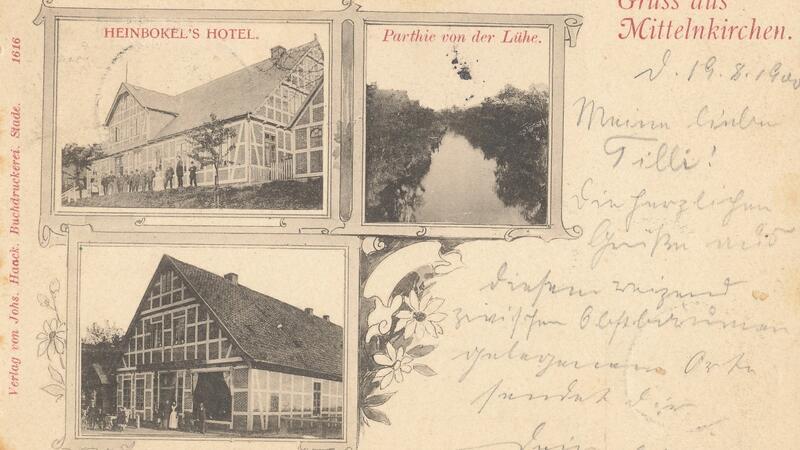 Gruss aus
Mittelnkirchen.
HEINBOKEL'S HOTEL.
Parthie von der Lühe.
Verlag von Johs. Haack. Buchdruckerei. Stade. 1616
d. 19.8.1900
Meine lieben
Tilli!
Die herzlichen
Grüße aus
diesem reizend
zwischen Obstbäumen
gelegenen Orte
sendet Dir